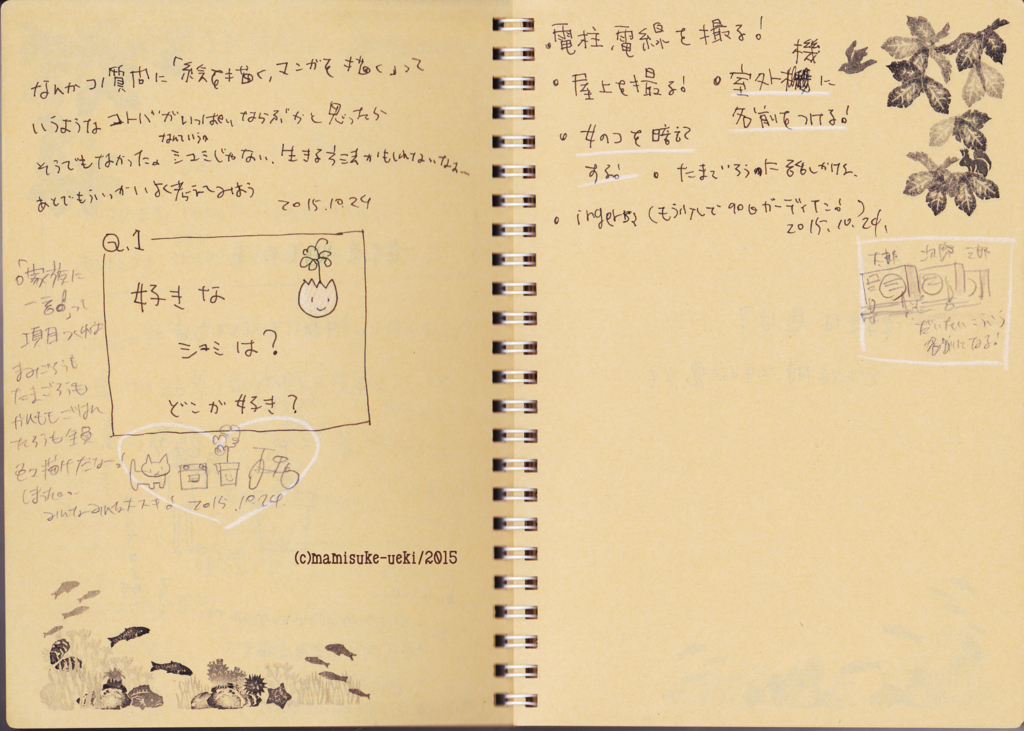 なんかコノ質問に「絵を描く,マンガを描く」って
いうような コトバがいっぱいならぶかと思ったら
なんていうか
そうでもなかった。シュミじゃない、生きる方法かもしれないなぁ…
あとでもういっかいよく考えてみよう
2015.10.24
Q.1
好きな
シュミは?
どこが好き?
「家族に
一言」って
項目つくれば
まみごろうも
たまごろうも
ごはん
たろうも全員
描けたなー!
しまった…
みんなみんな大スキ! 2015.10.24.
(c)mamisuke-ueki/2015
・電柱,電線を撮る!
・屋上を撮る!
・室外機に
機
名前をつける!
・女のコを暗記
する!
・たまごろうに話しかける。
・ingress (もう少しで90日ガーディアン!)
2015.10.24.
太郎 次郎 三郎
だいたいこういう
名前になる!